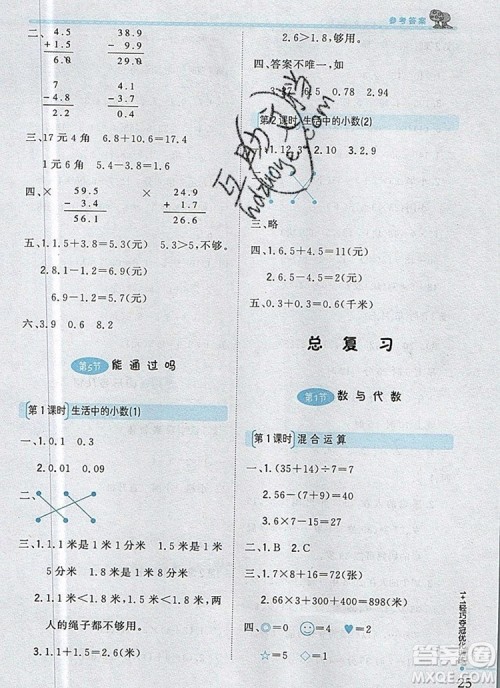 参考答案
二、 4.5 38.9
+ 1.5 - 9.9
6.0 29.0
7.1 6.4
- 4.8 - 3.7
2.3 2.7
三、17元4角 6.8+10.6=17.4
1元6角 5.4-3.8=1.6
四、 × ×
59.5 24.9
- 3.4 - 7.8
56.1 17.1
五、1.1.5+3.8=5.3(元) 5.3>5,不够。
2.8.1-2.9=5.2(元)
3.2.7-1.9=0.8(元)
六、3.9 0.6 8.2
第5节 能通过吗
第1课时 生活中的小数(1)
一、1.0.1 0.3
2.0.01 0.09
二、
三、1.1.1米是1米1分米 1.5米是1米
5分米 1.8米是1米8分米
2.1.9米>1.8米,1.9米<2米,两
人的绳子都不够用。
3.1.1+1.5=2.6(米)
2.6>1.8,够用。
四、答案不唯一,如
0.15 2.78 2.94
第2课时 生活中的小数(2)
一、1.12,3 2.10 3.2.9
二、
三、略
四、1.5.5+5.5=11(元)
2.3.6-1.5=2.1(元)
五、0.5-0.2=0.3(千米)
总复习
第1节 数与代数
第1课时 混合运算
一、1.(35+14)÷7=7
2.56-(7+9)=40
3.6×7-15=27
二、1.B 2.C
三、1.90-18=72(张)
2.66+(366+400)=898(人)
四、☺=0 ☺=4 ♥=2
☆=5 ◇=1
1+1轻巧夺冠优化训练
25
互助这作业
hdzuoye.com
答案圈
MXQE.COM